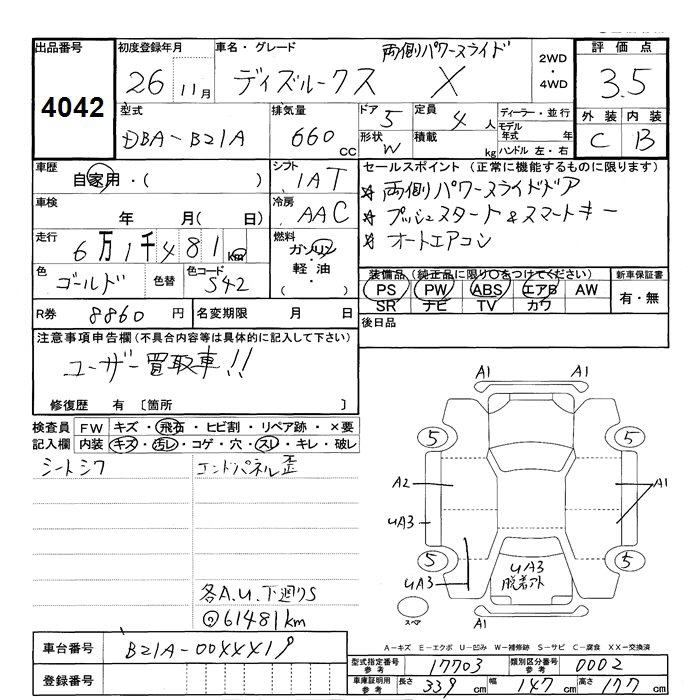 出品番号 初度登録年月 車名・グレード 両側パワースライド 2WD・4WD 評価点
4042 26年 11月 ディズルークス X 3.5
型式 排気量 ドア 5 定員 4人 ディーラー・並行 外装 内装
DBA-B21A 660cc 形状 W 積載 kg モデル年式 年 ハンドル 左・右 C B
車歴 自家用・( ) シフト IAT セールスポイント(正常に機能するものに限ります)
車検 年 月(日) 冷房 AAC ☆ 両側パワースライドドア
☆ プッシュスタート&スマートキー
走行 6万1千481km 燃料 ガソリン・軽油・( ) ☆ オートエアコン
色 ゴールド 色替 色コード S42 装備品(純正品に限り○をつけてください) 新車保証書
PS PW ABS エアB AW 有・無
SR ナビ TV カワ
R券 8860円 名変期限 月 日 後日品
注意事項申告欄(不具合内容等は具体的に記入して下さい)
ユーザー買取車!!
修復歴 有 〔箇所 〕
検査員記入欄 FW キズ・飛石・ヒビ割・リペア跡・×要
内装 キズ・汚レ・コゲ・穴・スレ・キレ・破レ
シートシワ エンドパネル歪
各A.U.下廻りS
@61481km
A1
5 5
A2 A1
UA3
5 5
UA3 UA3
脱着外
スペア
A1
車台番号 B21A-00XXX19
登録番号
A-キズ E-エクボ U-凹み W-補修跡 S-サビ C-腐食 XX-交換済
型式指定番号参考 17703 類別区分番号参考 0002
車庫証明用参考 長さ 339cm 幅 147cm 高さ 177cm